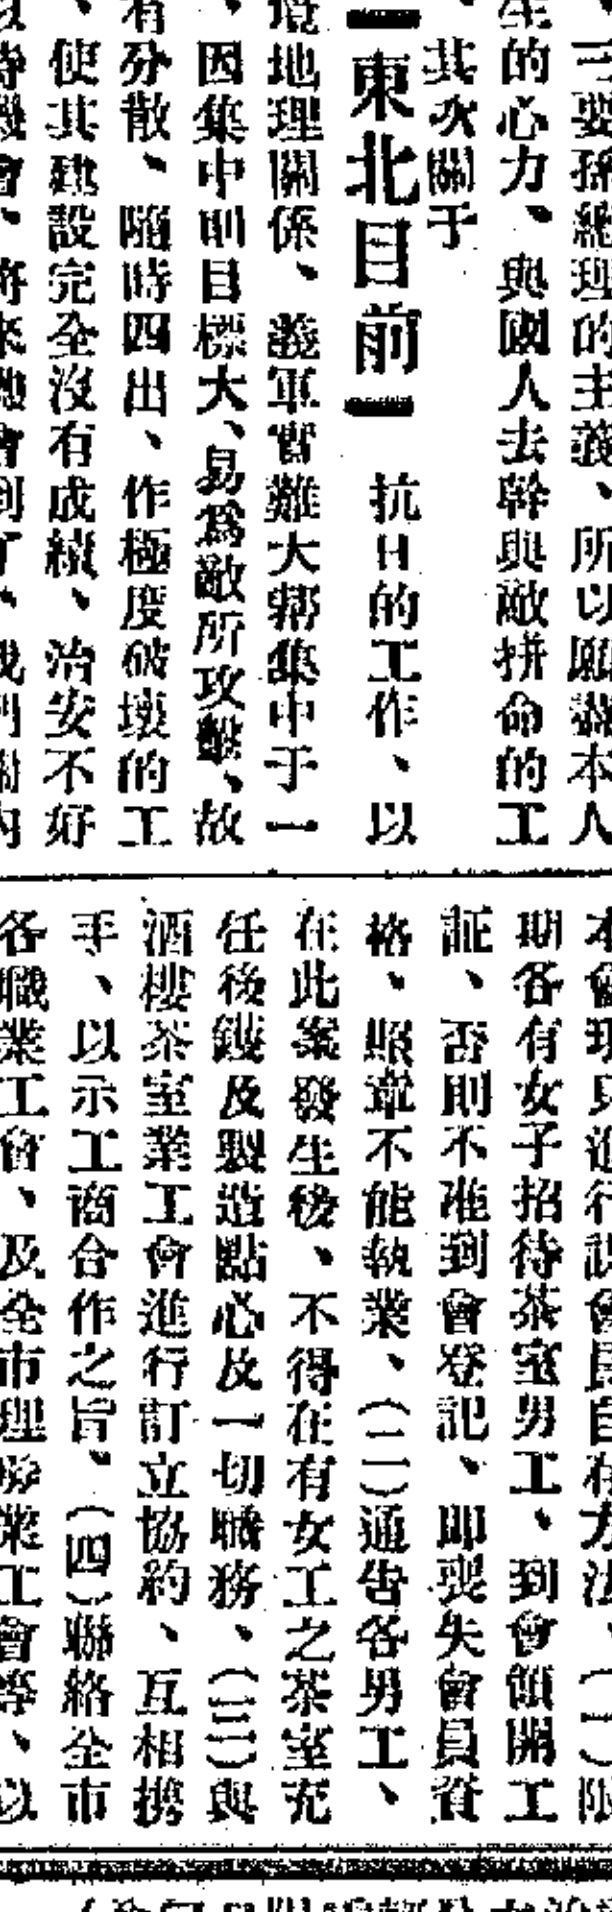 三要孫總理的主義、所以願盡本人
的心力、與國人去幹與敵拼命的工
、其次關于
東北目前
抗日的工作、以
境地理關係、義軍實難大幫集中于一
、因集中則目標大、易爲敵所攻擊、故
有分散、隨時四出、作極度破壞的工
、使其建設完全沒有成績、治安不好
待機會、將來機會到了、我們關內
本會現只進行設會員自有方法、(一)限
期各有女子招待茶室男工、到會領開工
証、否則不准到會登記、即喪失會員資
格、照章不能執業、(二)通告各男工、
在此案發生後、不得在有女工之茶室充
任後鑊及製造點心及一切職務、(三)與
酒樓茶室業工會進行訂立協約、互相携
手、以示工商合作之旨、(四)聯絡全市
各職業工會、及全市理髮業工會等、以